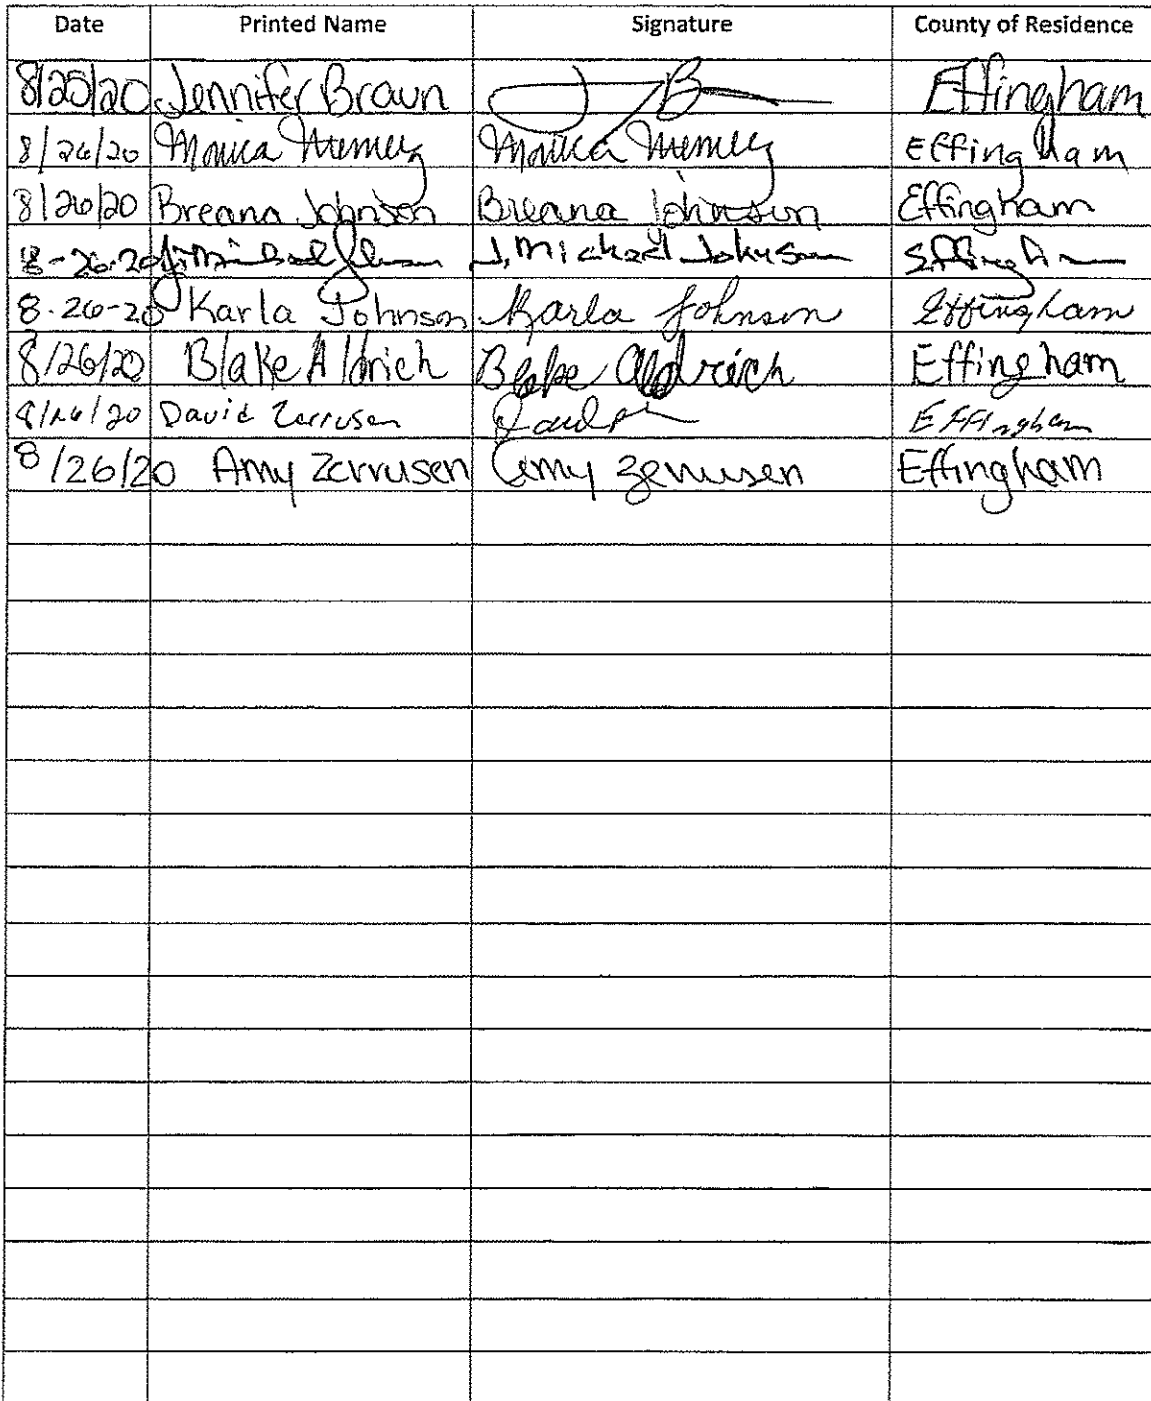 Date Printed Name Signature County of Residence
8/25/20 Jennifer Braun JB Effingham
8/26/20 Monica Monica Effingham
8/26/20 Breana Johnson Breana Johnson Effingham
8-26-20 J. Michael Johnson J. Michael Johnson Effingham
8-26-20 Karla Johnson Karla Johnson Effingham
8/26/20 Blake Aldrich Blake Aldrich Effingham
8/26/20 David Zerrusen Effingham
8/26/20 Amy Zerrusen Amy Zerrusen Effingham